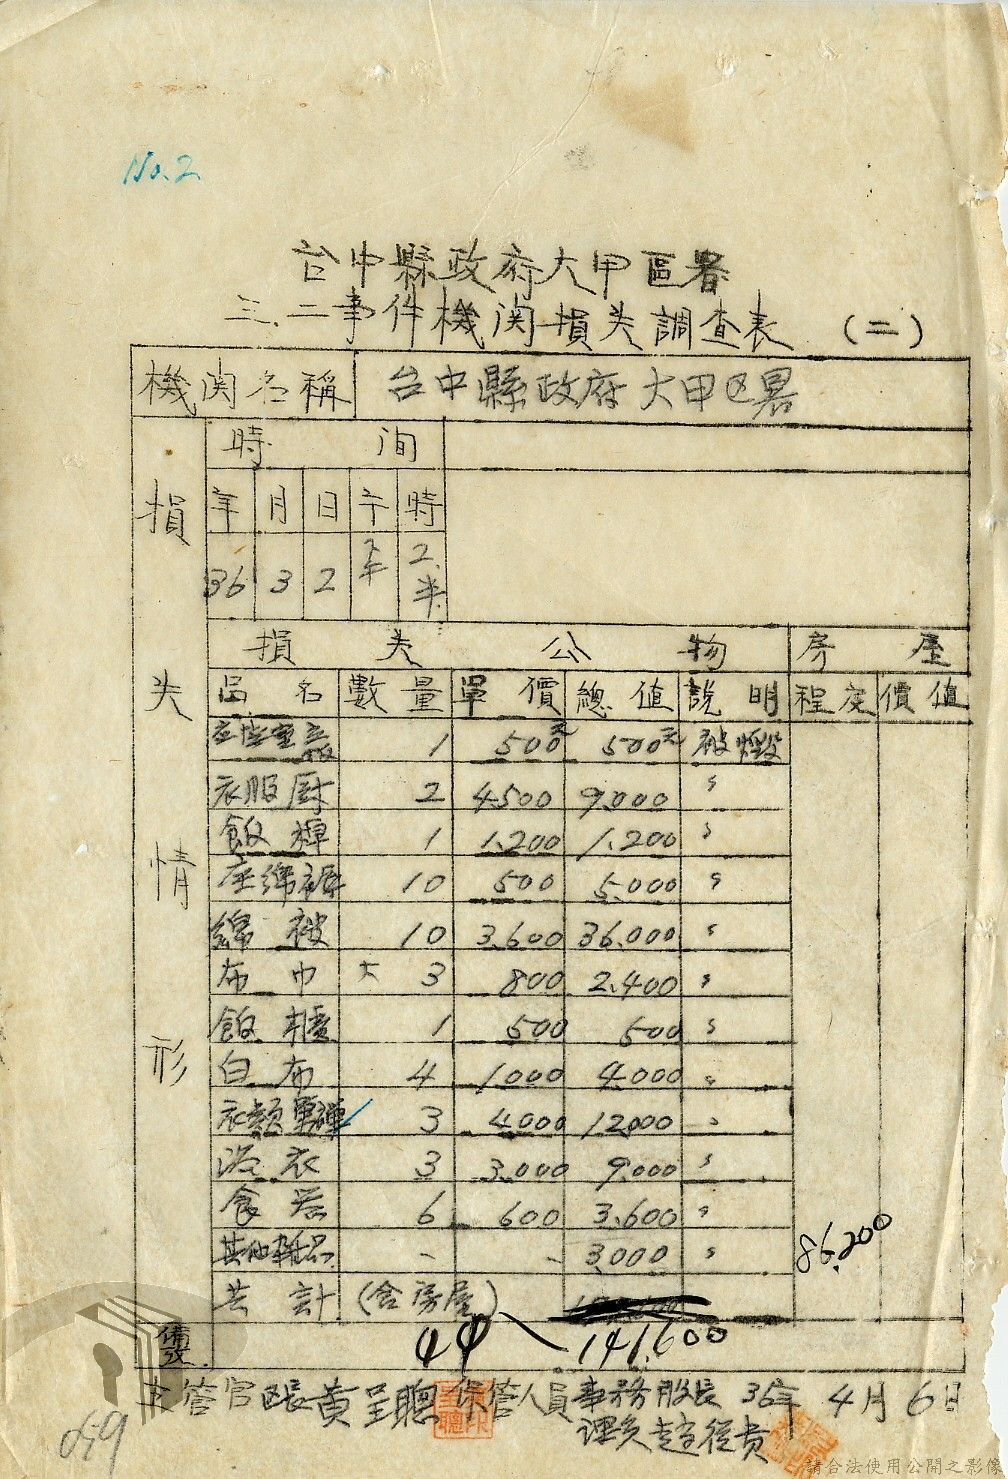 No.2
台中縣政府大甲區署
三.二事件機関損失調査表 (二)
機関名稱 台中縣政府大甲区署
損失情形
時 間
年 月 日 午 時
36 3 2 下午 2.半
損 失 公 物 房 屋
品 名 數 量 單 價 總 值 說 明 程度 價值
1 500元 500元 被燬
衣服厨 2 4500 9,000 〃
飯 1 1.200 1.200 〃
座綿褥 10 500 5.000 〃
綿 被 10 3.600 36.000 〃
布 巾 大 3 800 2.400 〃
飯 櫃 1 500 500 〃
白 布 4 1000 4.000 〃
衣類 3 4000 12000 〃
浴 衣 3 3.000 9.000 〃
食 器 6 600 3.600 〃
其他雜品 - - 3.000 〃
86.200
共 計 (含房屋)
44 141.600
備攷
主管官区長黃呈聰 保管人員事務股長 36年 4月 6日
課員
059
請合法使用公開之影像